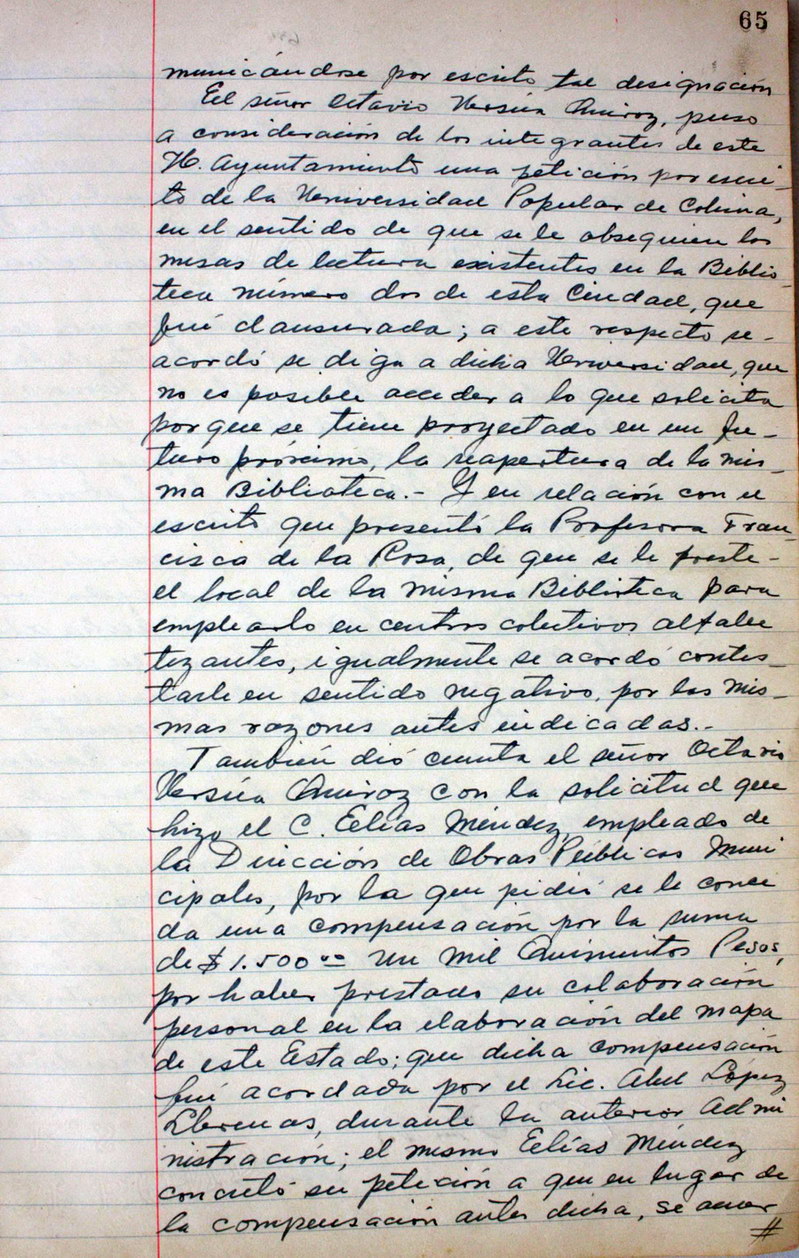 65
municándose por escrito tal designación
El señor Octavio Ursúa Quiroz, puso
a consideración de los integrantes de este
H. Ayuntamiento una petición por escri-
to de la Universidad Popular de Colima,
en el sentido de que se le obsequien las
mesas de lectura existentes en la Biblio-
teca número dos de esta Ciudad, que
fué clausurada; a este respecto se-
acordó se diga a dicha Universidad, que
no es posible acceder a lo que solicita
porque se tiene proyectado en un fu-
turo próximo, la reapertura de la mis-
ma Biblioteca.- Y en relación con el
escrito que presentó la Profesora Fran-
cisca de la Rosa, de que se le preste-
el local de la misma Biblioteca para
emplearlo en centros colectivos alfabe
tizantes, igualmente se acordó contes-
tarle en sentido negativo, por las mis-
mas razones antes indicadas.-
También dió cuenta el señor Octavio
Ursúa Quiroz con la solicitud que
hizo el C. Elías Méndez, empleado de
la Dirección de Obras Públicas Muni
cipales, por la que pidió se le conce
da una compensación por la suma
de $ 1.500.00 Un Mil Quinientos Pesos,
por haber prestado su colaboración
personal en la elaboración del mapa
de este Estado; que dicha compensación
fué acordada por el Lic. Abel López
Llerenas, durante la anterior Admi
nistración; el mismo Elías Méndez
concretó su petición a que en lugar de
la compensación antes dicha, se acuer
#